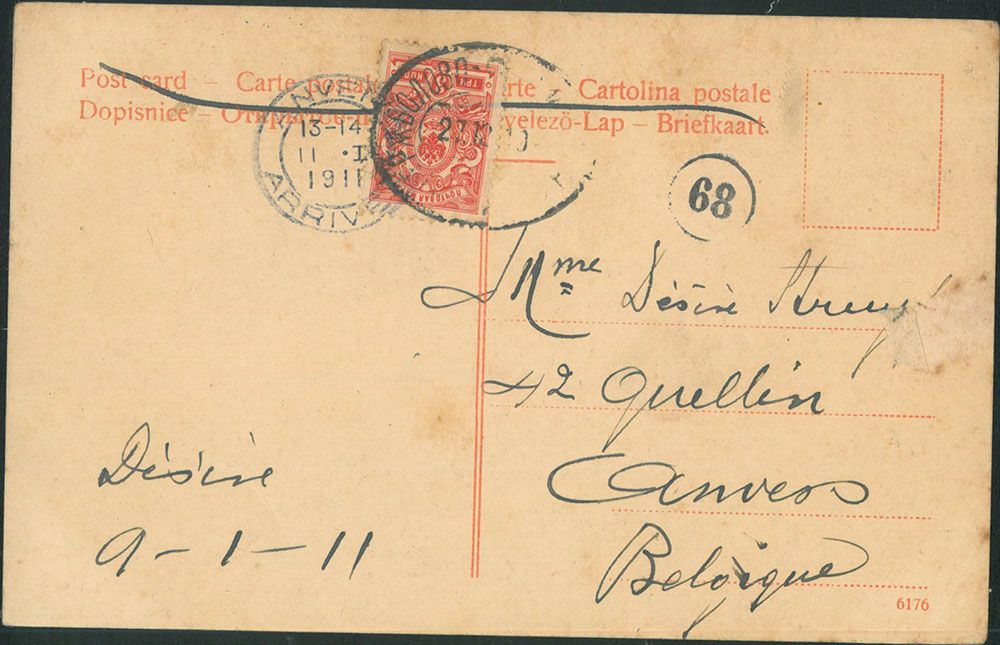 Post card – Carte postale arte – Cartolina postale
Dopisnice – evelező-Lap – Briefkaart.
13-14
11 · I
1911
ARRIVE
68
Mme Désiré
42 Quellin
Anvers
Belgique
Désiré
9-1-11
6176